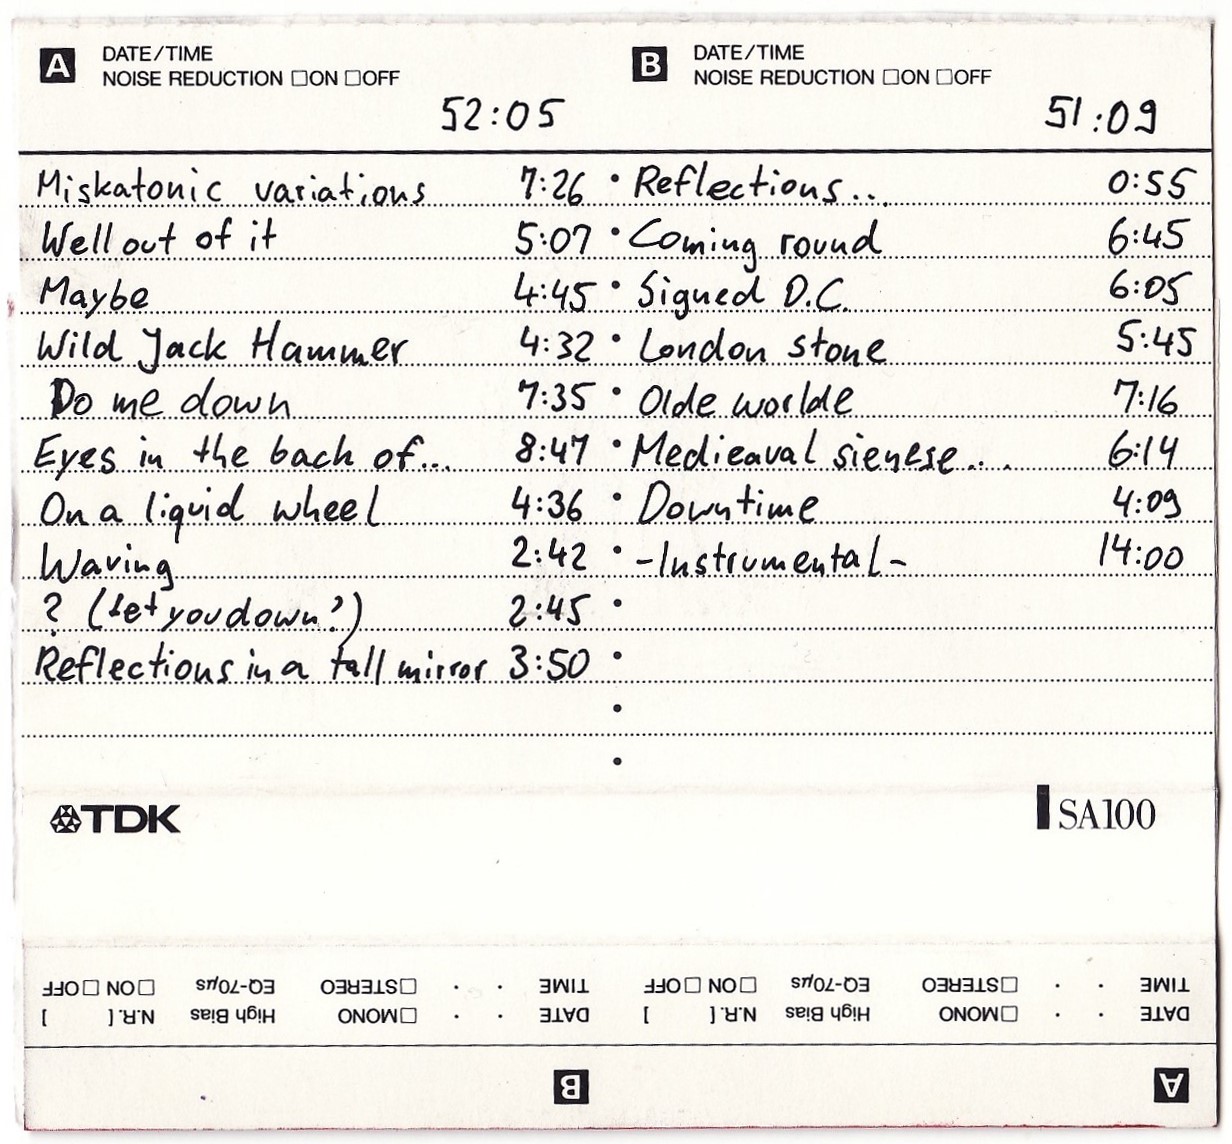 A DATE/TIME
NOISE REDUCTION □ON □OFF
52:05
Miskatonic variations 7:26
Well out of it 5:07
Maybe 4:45
Wild Jack Hammer 4:32
Do me down 7:35
Eyes in the back of... 8:47
On a liquid wheel 4:36
Waving 2:42
? (Let you down?) 2:45
Reflections in a tall mirror 3:50
B DATE/TIME
NOISE REDUCTION □ON □OFF
51:09
Reflections... 0:55
Coming round 6:45
Signed D.C. 6:05
London stone 5:45
Olde worlde 7:16
Medieaval sienese... 6:14
Downtime 4:09
-Instrumental- 14:00
TDK
SA100
A
DATE · · □MONO High Bias N.R. [ ]
TIME · · □STEREO EQ-70µs □ON □OFF
B
DATE · · □MONO High Bias N.R. [ ]
TIME · · □STEREO EQ-70µs □ON □OFF